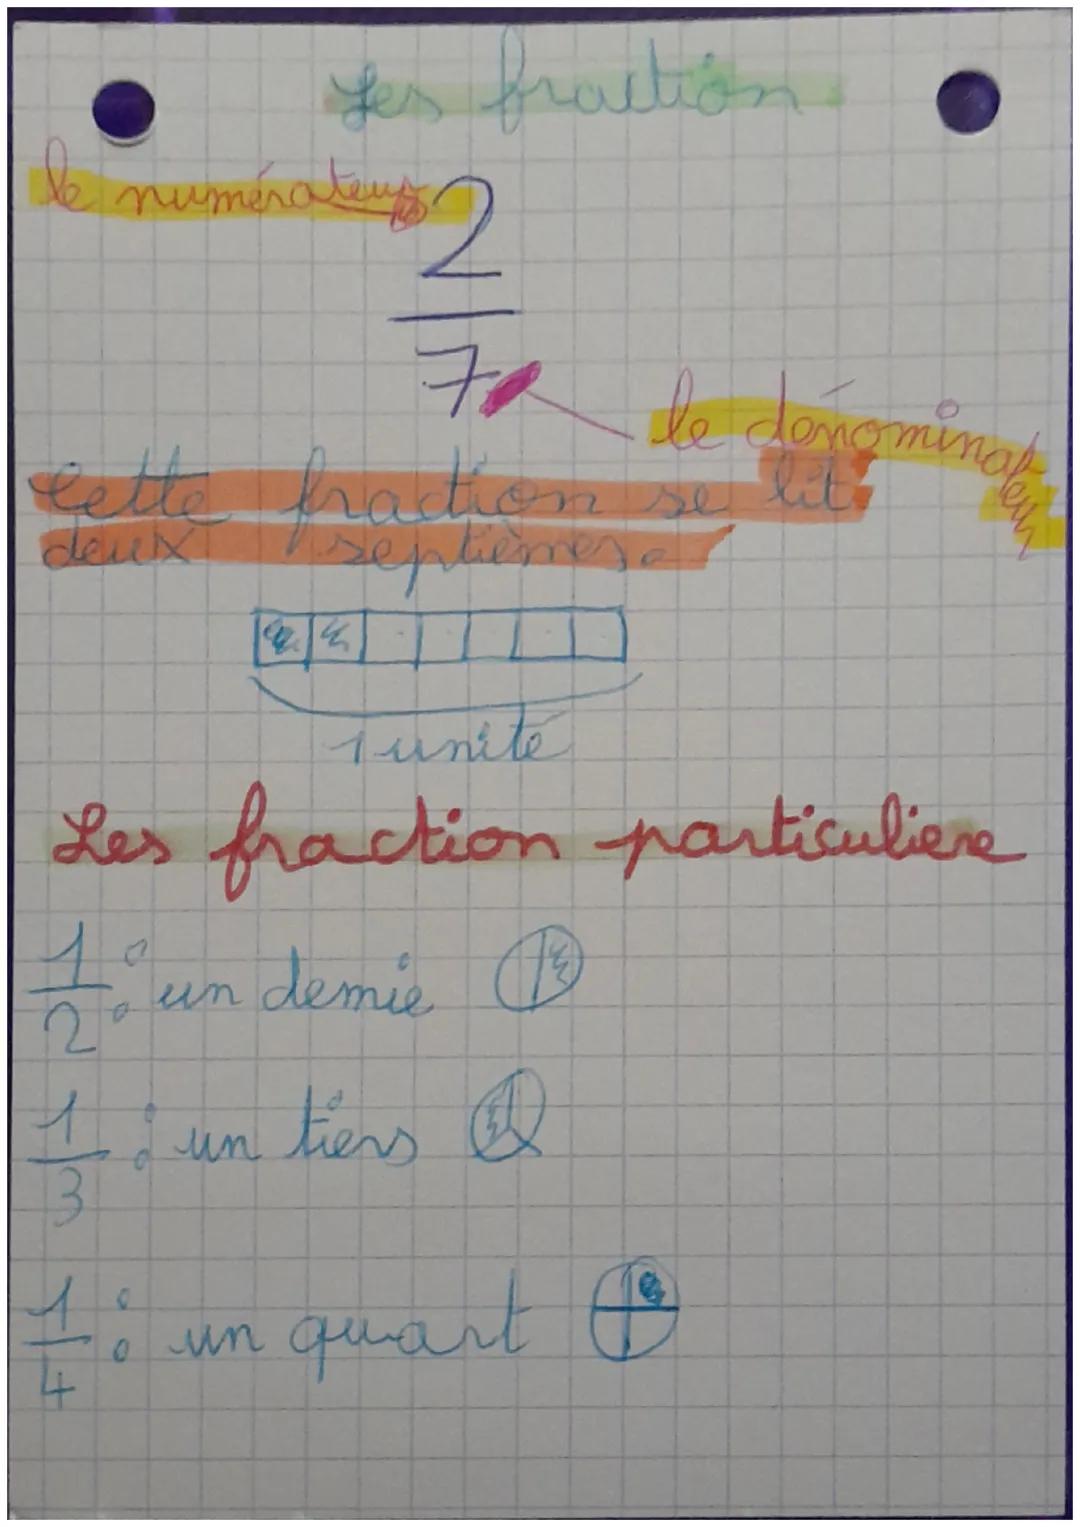 Les fraction
le numérateur
2
7
le dénominateur
Cette fraction se lit
deux septièmes.
1 unité
Les fraction particuliere
1
2
: un demie
1
3
: un tiers
1
4
: un quart